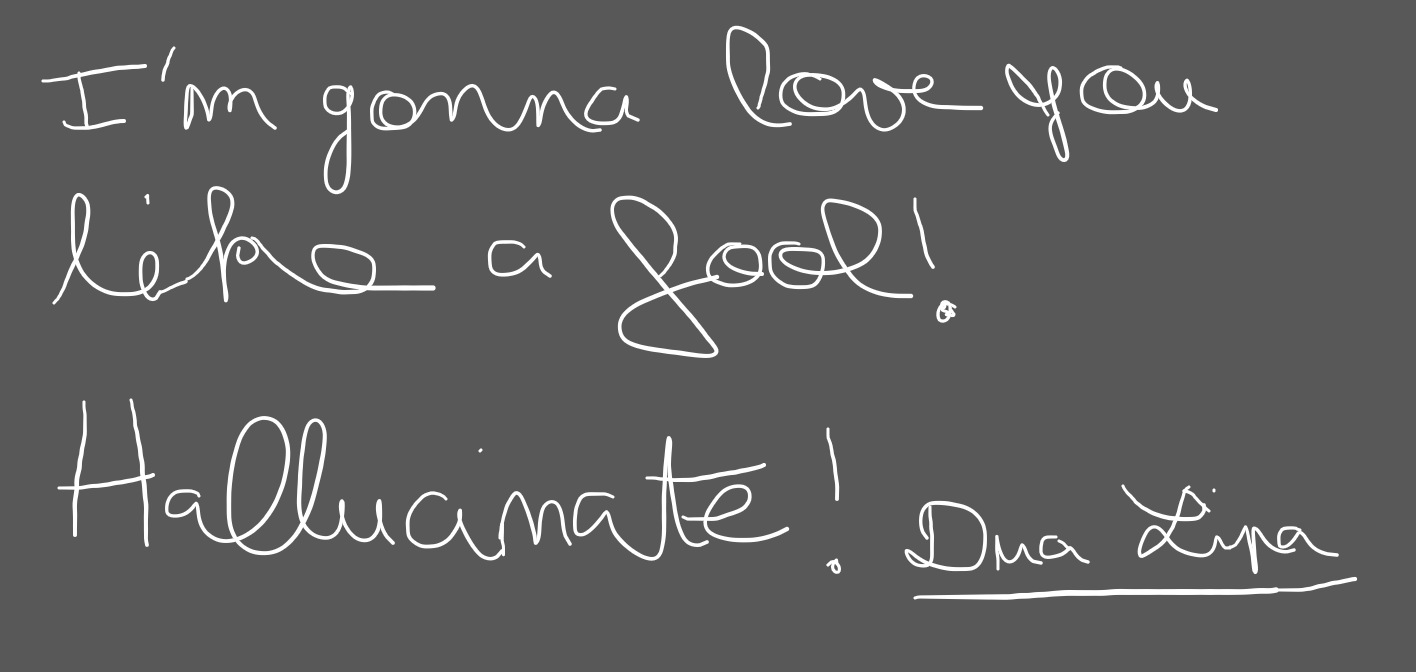 I'm gonna love you
like a fool!
Hallucinate! Dua Lipa